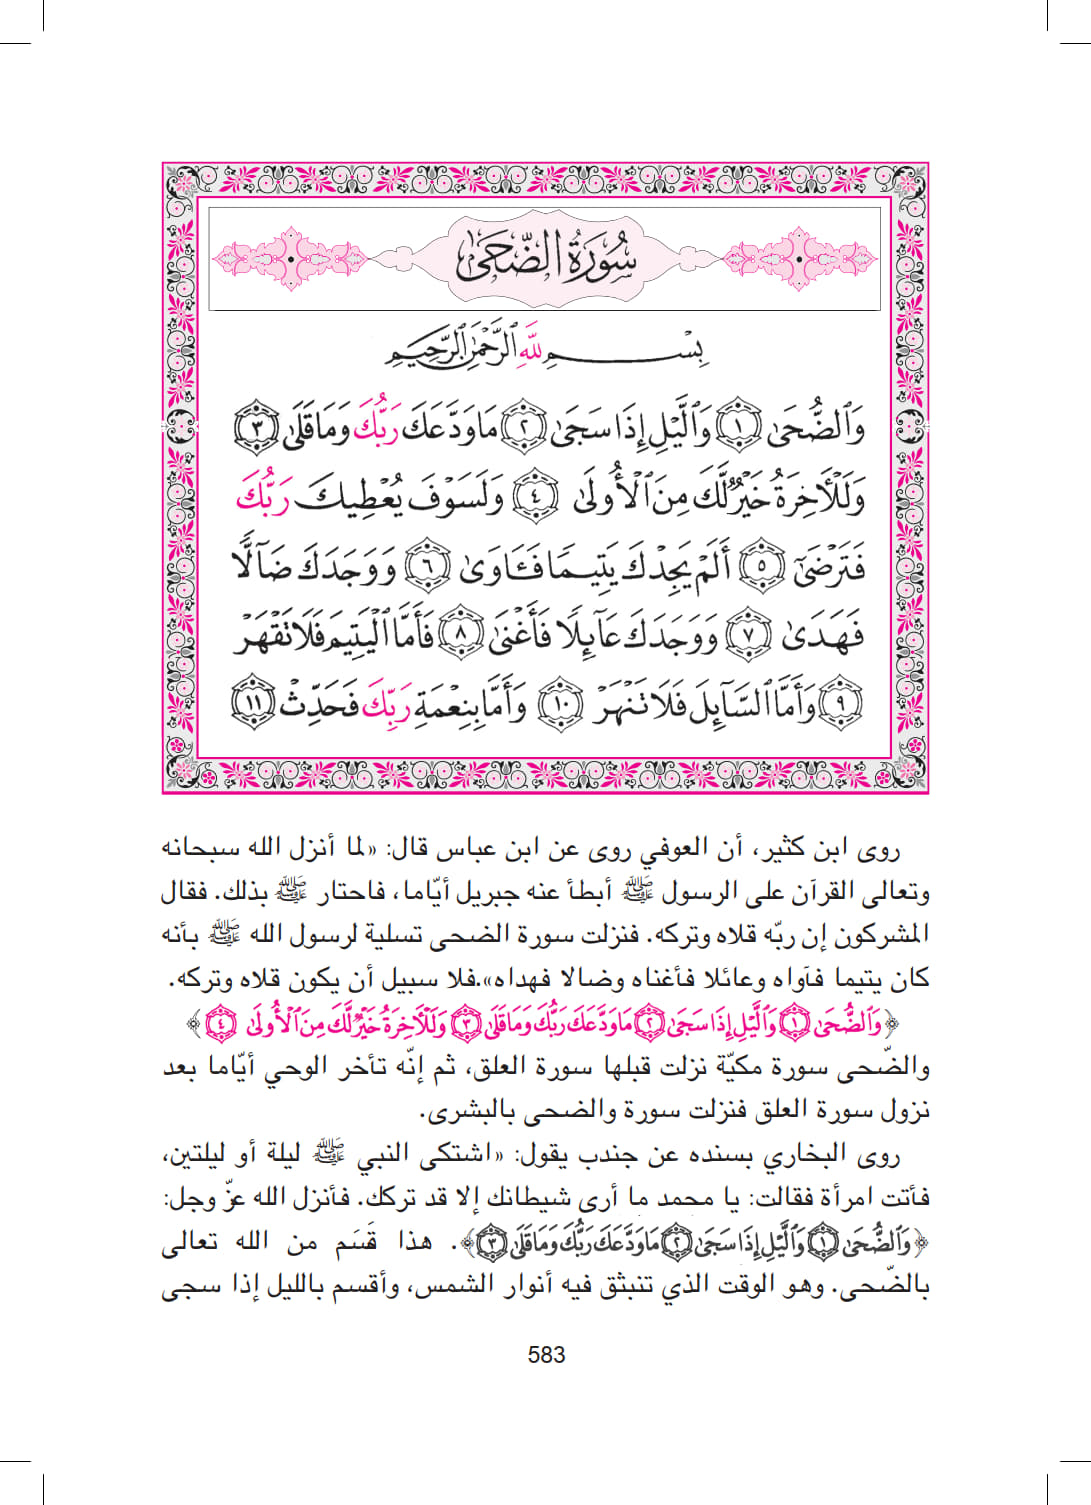 سُورَةُ الضُّحَىٰ
بِسْمِ ٱللَّهِ ٱلرَّحْمَٰنِ ٱلرَّحِيمِ
وَٱلضُّحَىٰ ١ وَٱلَّيْلِ إِذَا سَجَىٰ ٢ مَا وَدَّعَكَ رَبُّكَ وَمَا قَلَىٰ ٣
وَلَلْـَٔاخِرَةُ خَيْرٌ لَّكَ مِنَ ٱلْأُولَىٰ ٤ وَلَسَوْفَ يُعْطِيكَ رَبُّكَ
فَتَرْضَىٰٓ ٥ أَلَمْ يَجِدْكَ يَتِيمًا فَـَٔاوَىٰ ٦ وَوَجَدَكَ ضَآلًّا
فَهَدَىٰ ٧ وَوَجَدَكَ عَآئِلًا فَأَغْنَىٰ ٨ فَأَمَّا ٱلْيَتِيمَ فَلَا تَقْهَرْ
٩ وَأَمَّا ٱلسَّآئِلَ فَلَا تَنْهَرْ ١٠ وَأَمَّا بِنِعْمَةِ رَبِّكَ فَحَدِّثْ ١١
روى ابن كثير، أن العوفي روى عن ابن عباس قال: «لما أنزل الله سبحانه
وتعالى القرآن على الرسول ﷺ أبطأ عنه جبريل أيّاما، فاحتار ﷺ بذلك. فقال
المشركون إن ربّه قلاه وتركه. فنزلت سورة الضحى تسلية لرسول الله ﷺ بأنه
كان يتيما فآواه وعائلا فأغناه وضالا فهداه».فلا سبيل أن يكون قلاه وتركه.
﴿وَٱلضُّحَىٰ ١ وَٱلَّيْلِ إِذَا سَجَىٰ ٢ مَا وَدَّعَكَ رَبُّكَ وَمَا قَلَىٰ ٣ وَلَلْـَٔاخِرَةُ خَيْرٌ لَّكَ مِنَ ٱلْأُولَىٰ ٤﴾
والضّحى سورة مكيّة نزلت قبلها سورة العلق، ثم إنّه تأخر الوحي أيّاما بعد
نزول سورة العلق فنزلت سورة والضحى بالبشرى.
روى البخاري بسنده عن جندب يقول: «اشتكى النبي ﷺ ليلة أو ليلتين،
فأتت امرأة فقالت: يا محمد ما أرى شيطانك إلا قد تركك. فأنزل الله عزّ وجل:
﴿وَٱلضُّحَىٰ ١ وَٱلَّيْلِ إِذَا سَجَىٰ ٢ مَا وَدَّعَكَ رَبُّكَ وَمَا قَلَىٰ ٣﴾. هذا قَسَم من الله تعالى
بالضّحى. وهو الوقت الذي تنبثق فيه أنوار الشمس، وأقسم بالليل إذا سجى
583